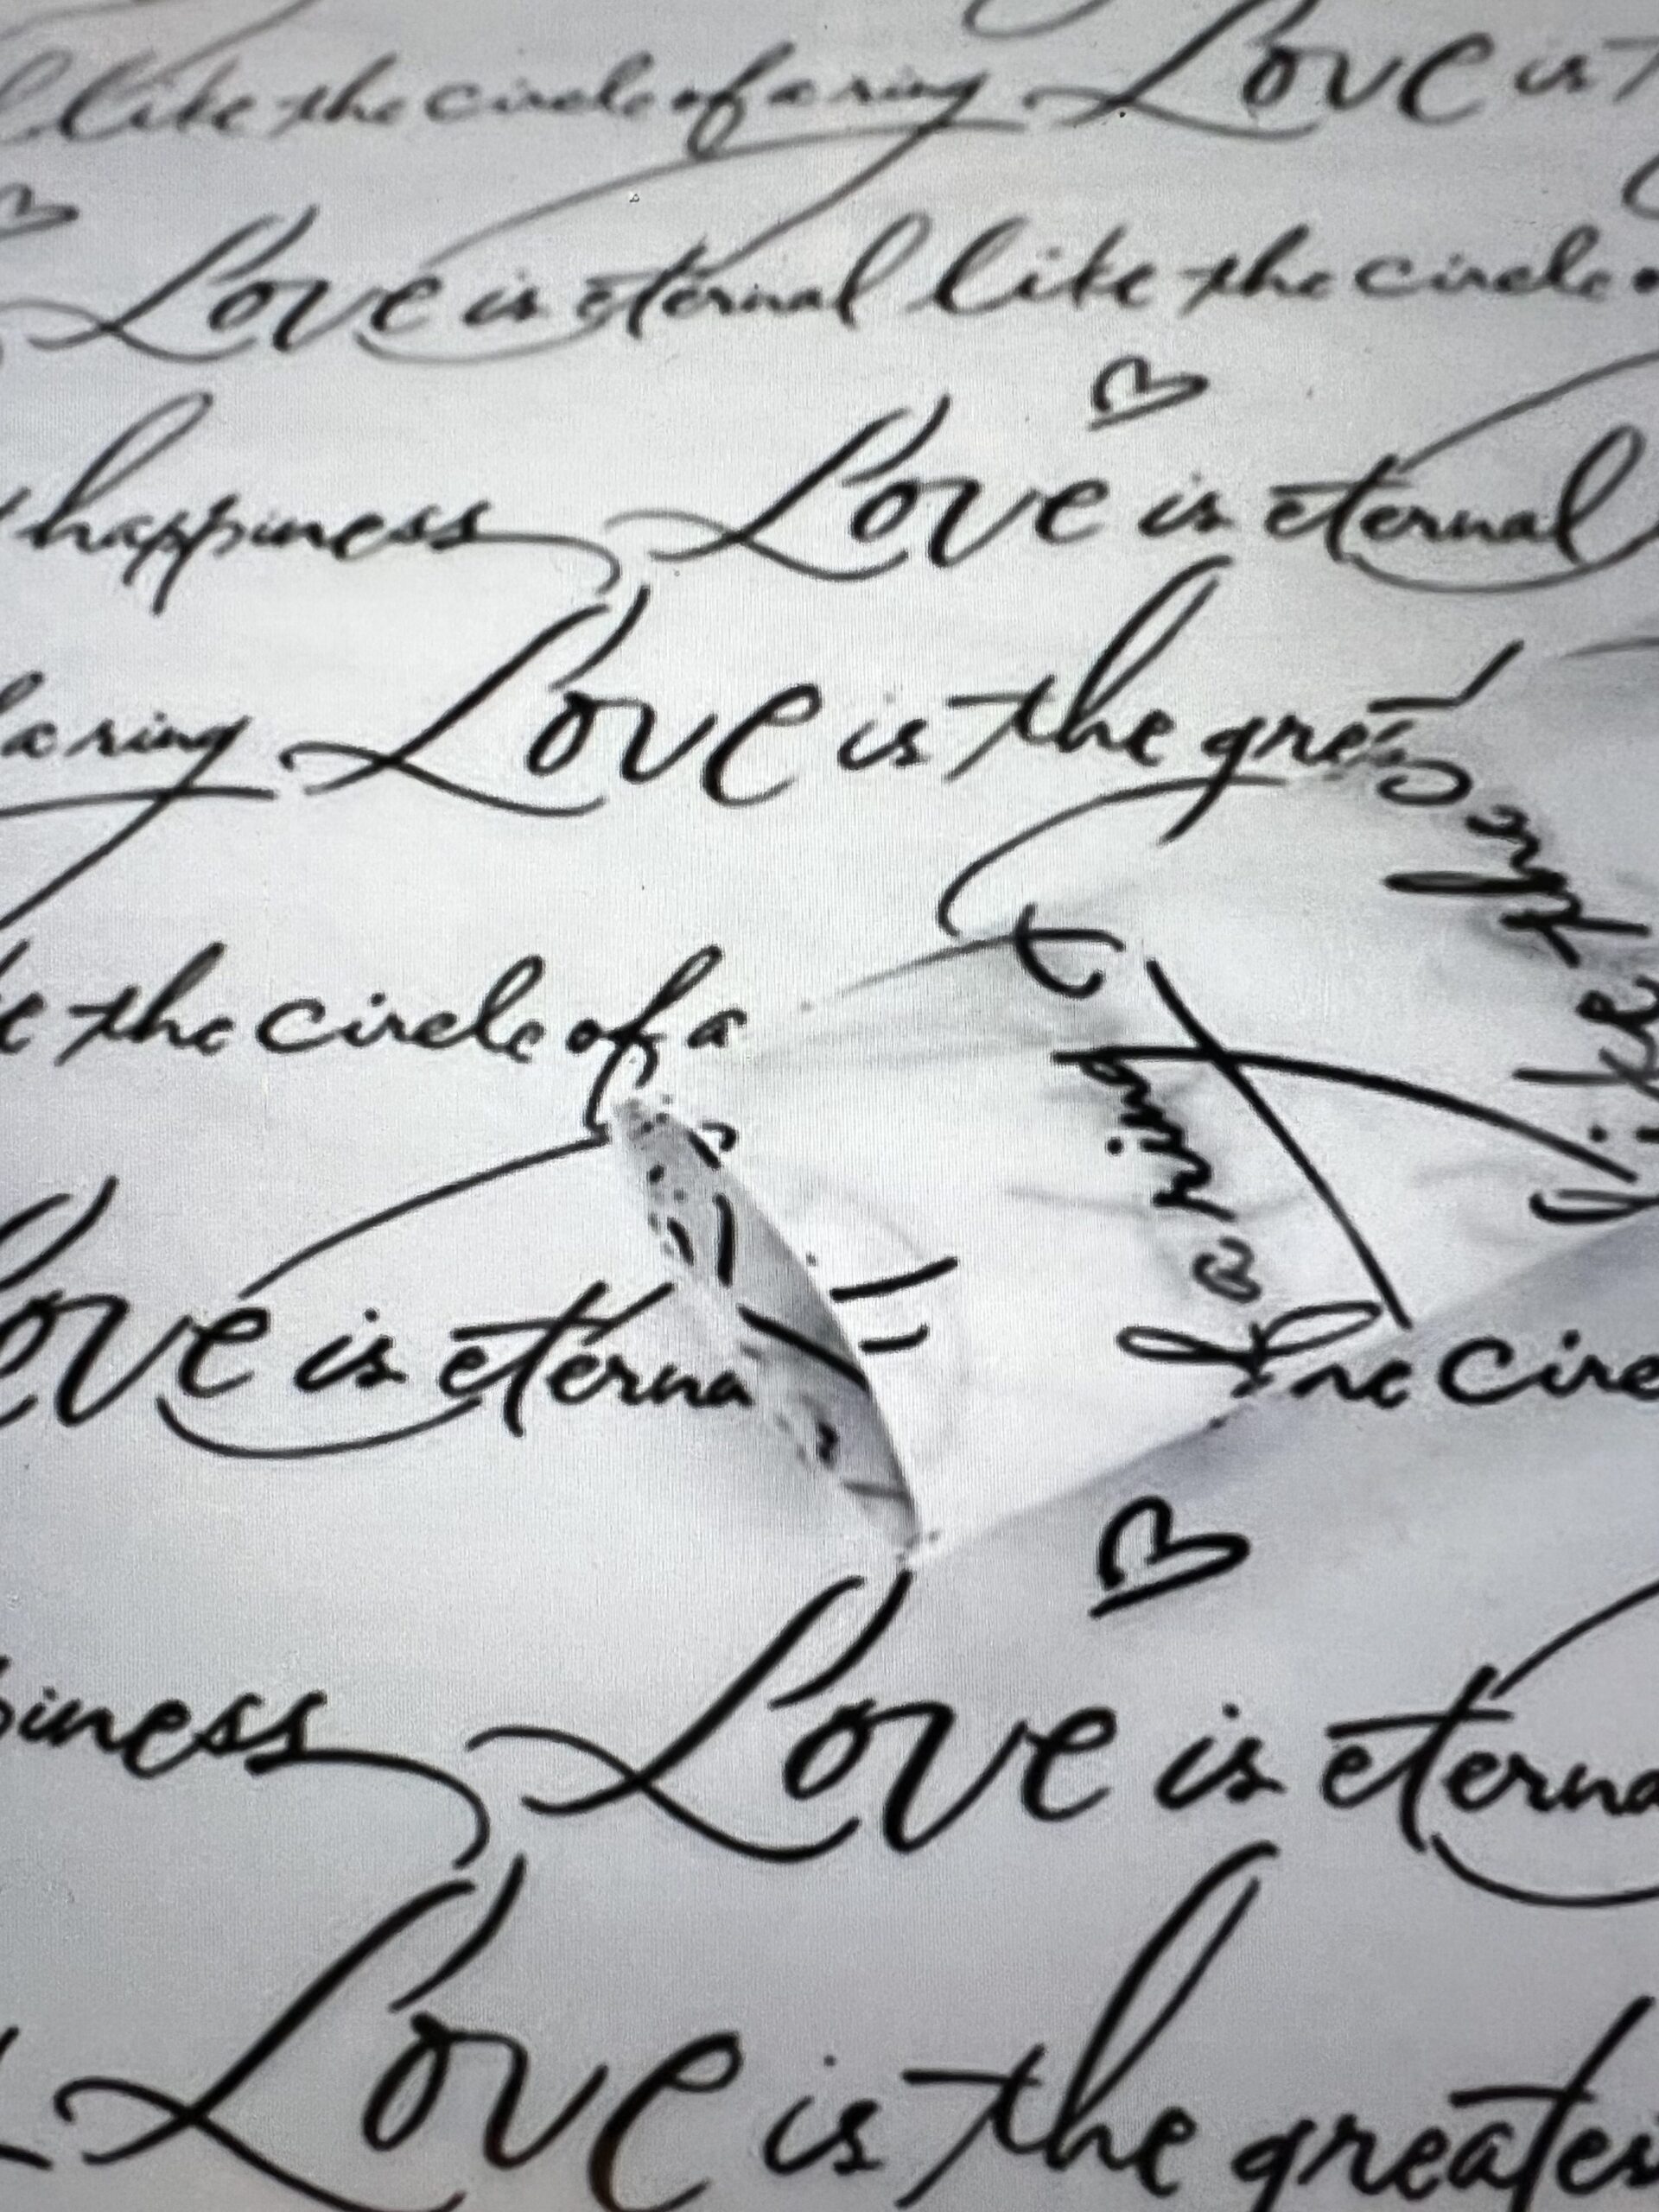 like the circle of a ring Love is
Love is eternal like the circle
happiness Love is eternal
a ring Love is the grea
the circle of a
ring
a
like
Love is eterna
the circ
piness Love is eterna
Love is the greates